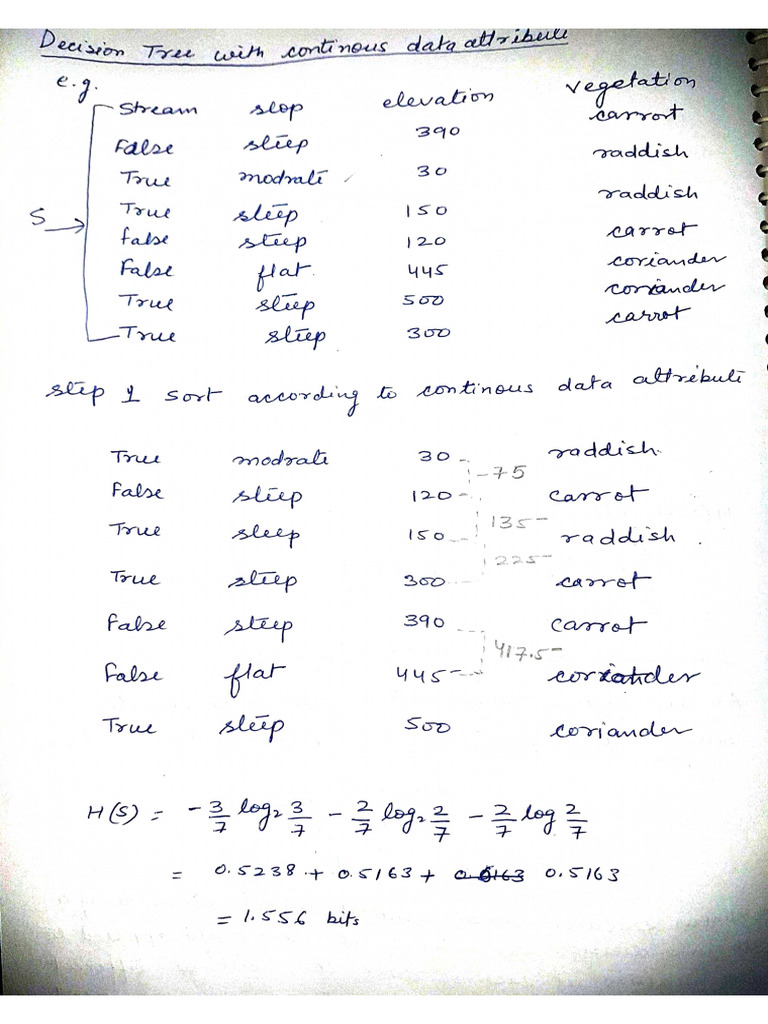 Decision Tree with continous data attribute
e.g.
Stream slop elevation vegetation
False steep 390 carrort
True modrate 30 raddish
S True steep 150 raddish
false steep 120 carrot
False flat. 445 coriander
True steep 500 coriander
True steep 300 carrot
step 1 sort according to continous data attribute
True modrate 30 raddish
-75
False steep 120 carrot
135
True steep 150 raddish
225
True steep 300 carrot
False steep 390 carrot
417.5
False flat 445 coriander
True steep 500 coriander
H(S) = - 3/7 log₂ 3/7 - 2/7 log₂ 2/7 - 2/7 log 2/7
= 0.5238 + 0.5163 + 0.5163
= 1.556 bits